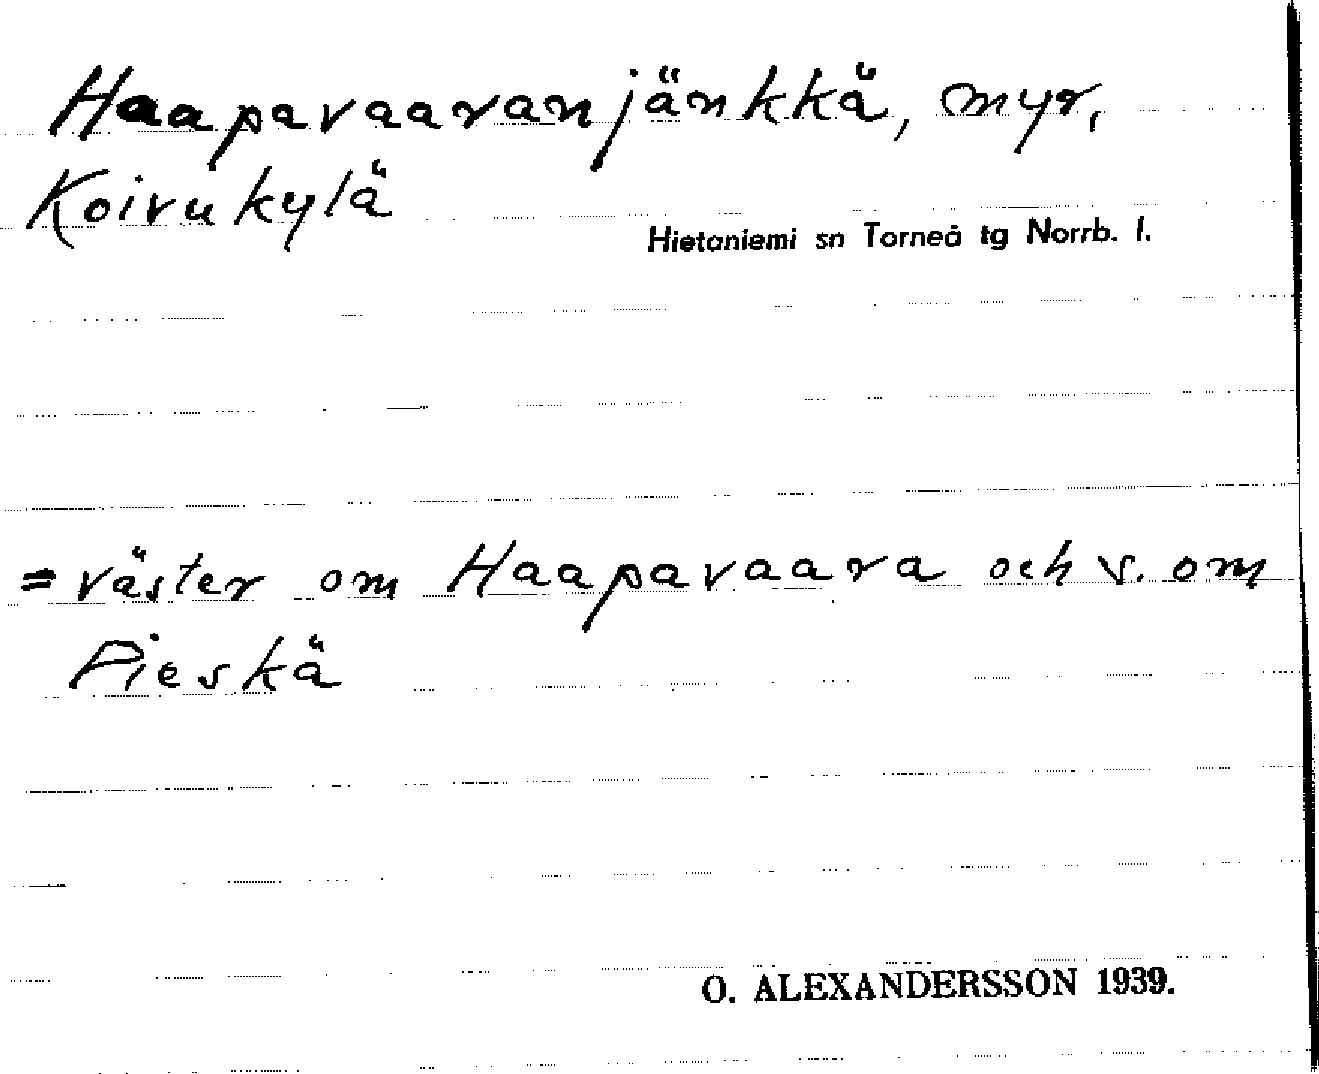 Haapavaaranjänkkä, myr,
Koivukylä
Hietaniemi sn Torneå tg Norrb. l.
= väster om Haapavaara och v. om
Pieskä
O. ALEXANDERSSON 1939.